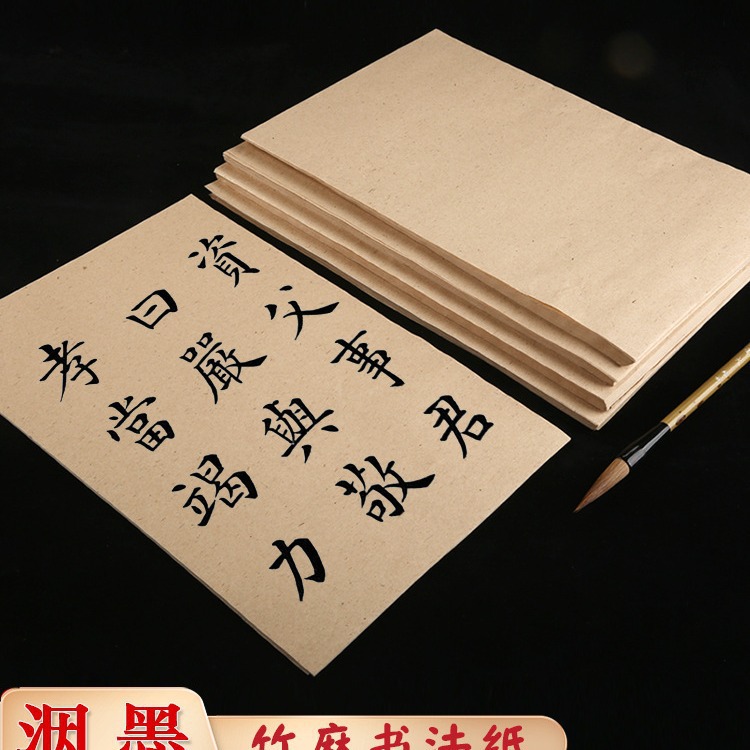 資父事君
曰嚴與敬
孝當竭力
洇墨
竹麻书法纸